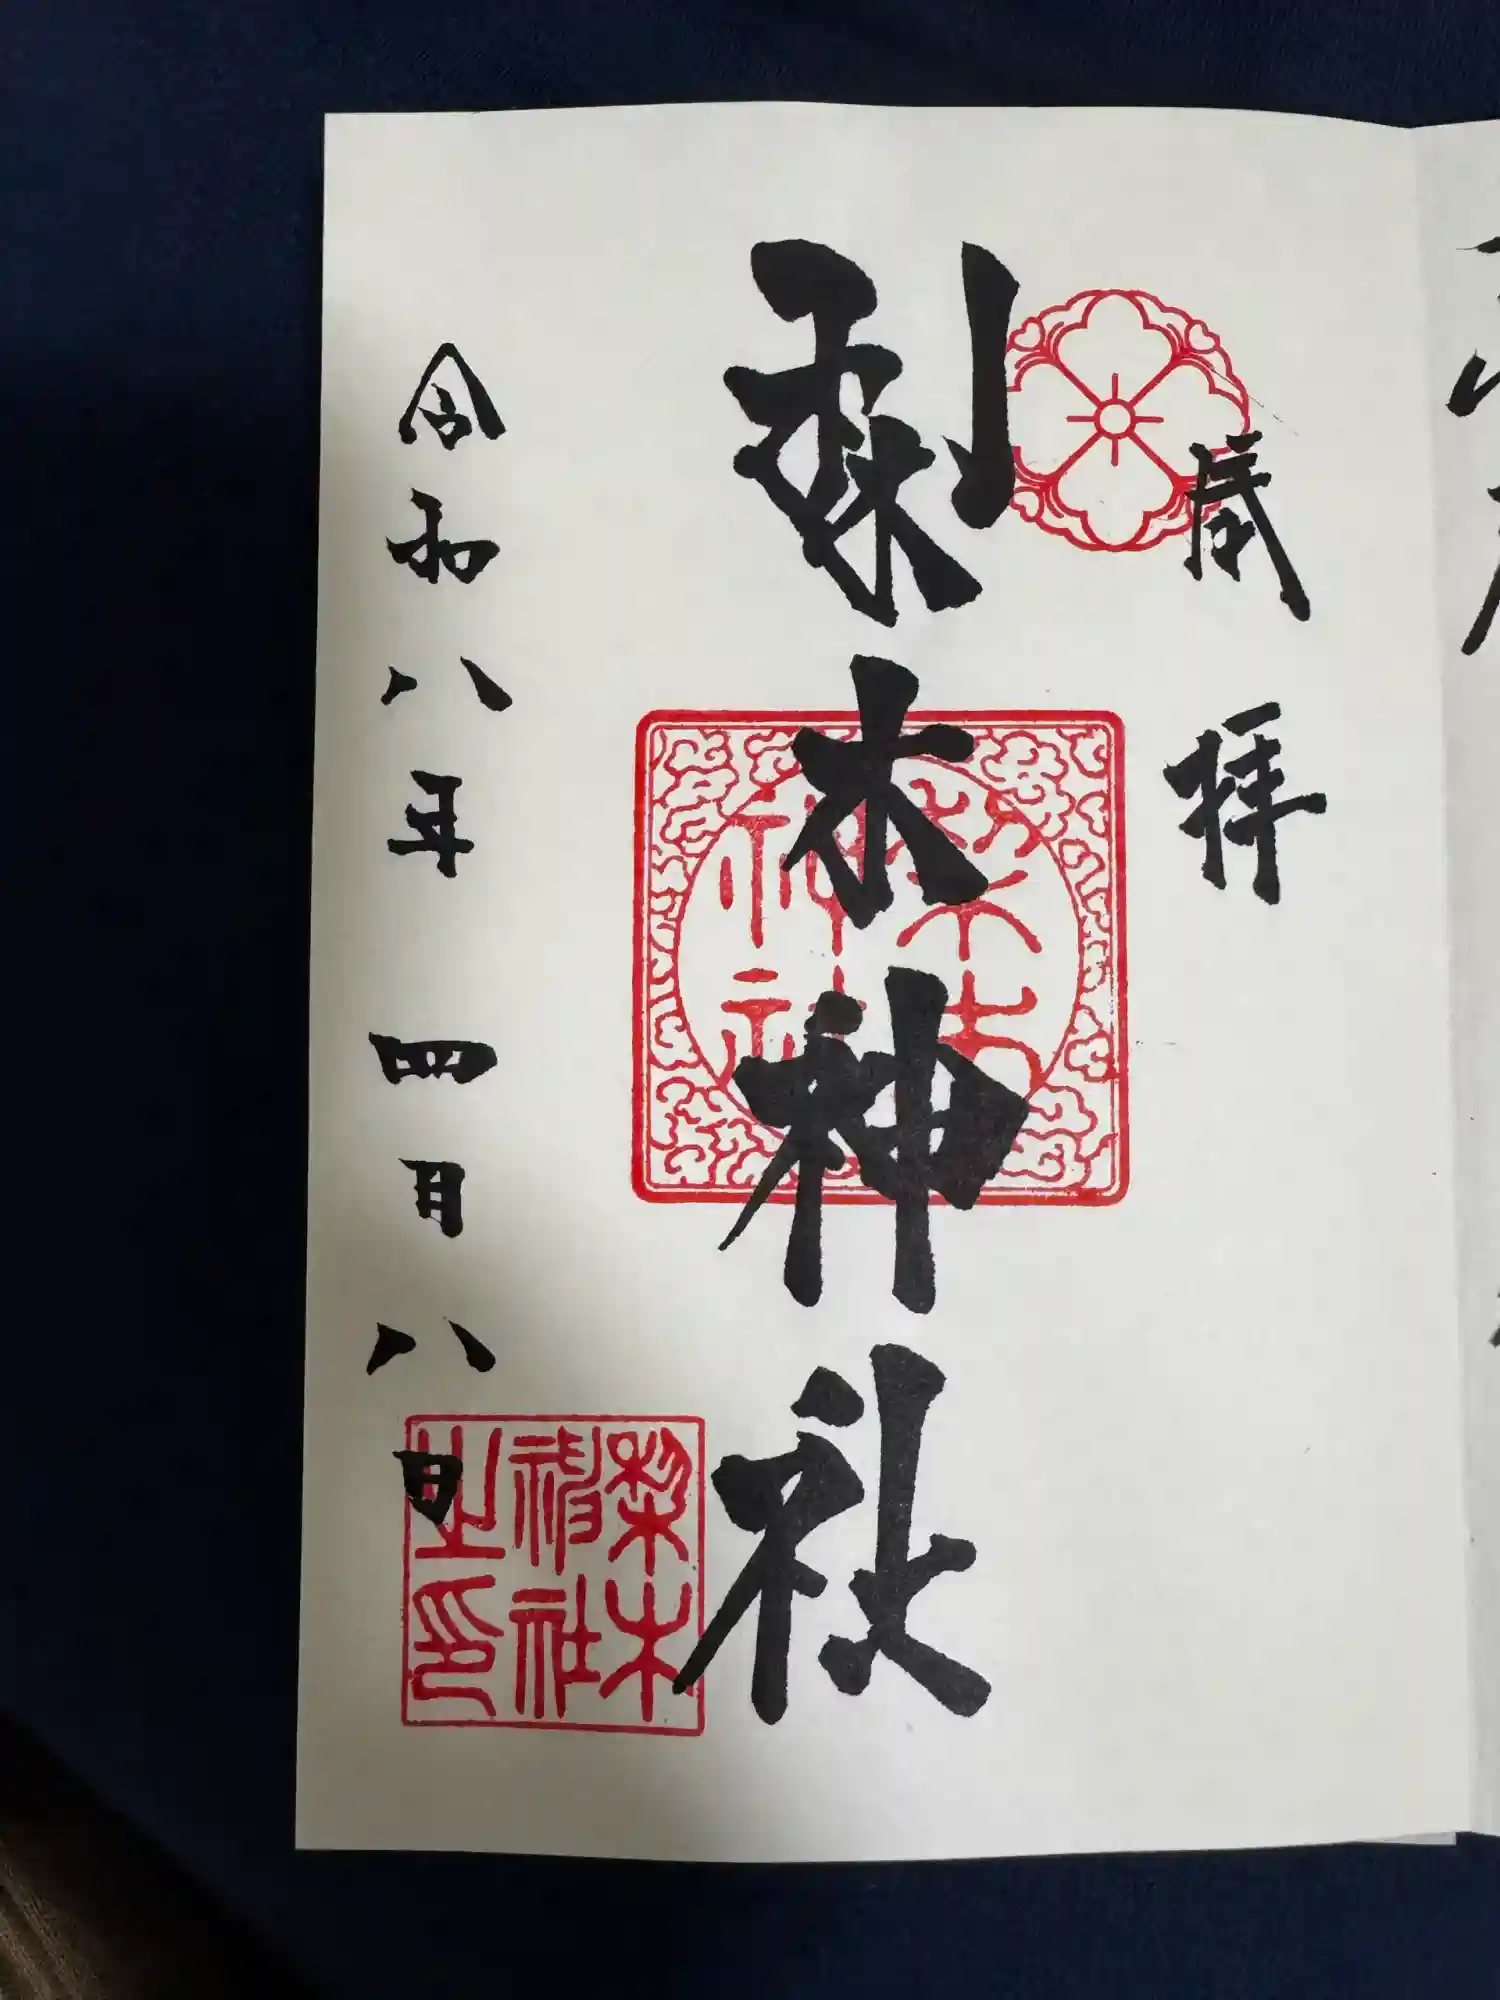 拝
梨木神社
梨木
神社
令和八年 四月八日
梨木
神社
之印